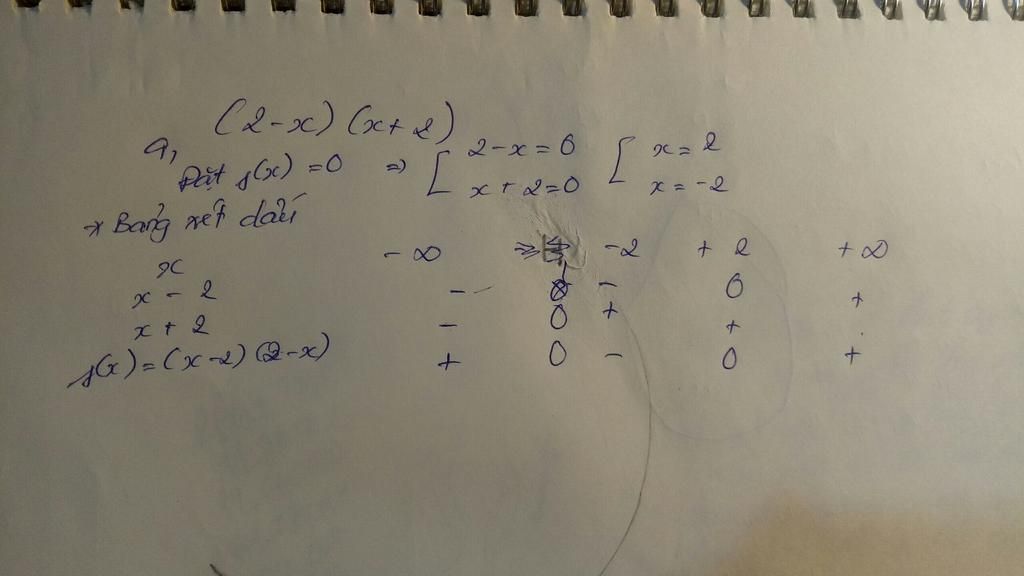 (2-x) (x+2)
a, Đặt f(x) = 0 => [ 2-x=0 [ x=2
x+2=0 x=-2
* Bảng xét dấu
x -∞ -2 +2 +∞
x - 2 - - 0 +
x + 2 - 0 + +
f(x)=(x-2)(2-x) + 0 - 0 +